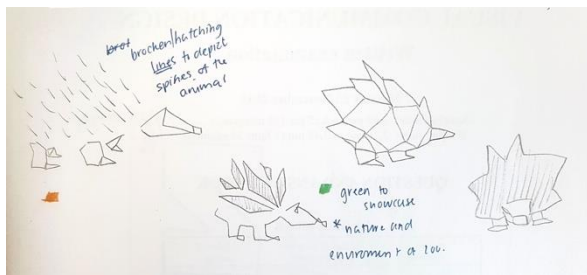 brocken/hatching
lines to depict
spines of the
animal
green to
snowcase
* nature and
enviroment of zoo.